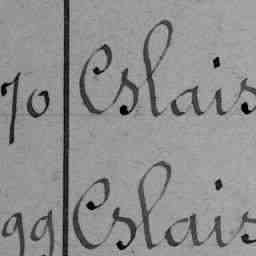 70 Eslais
99 Eslais